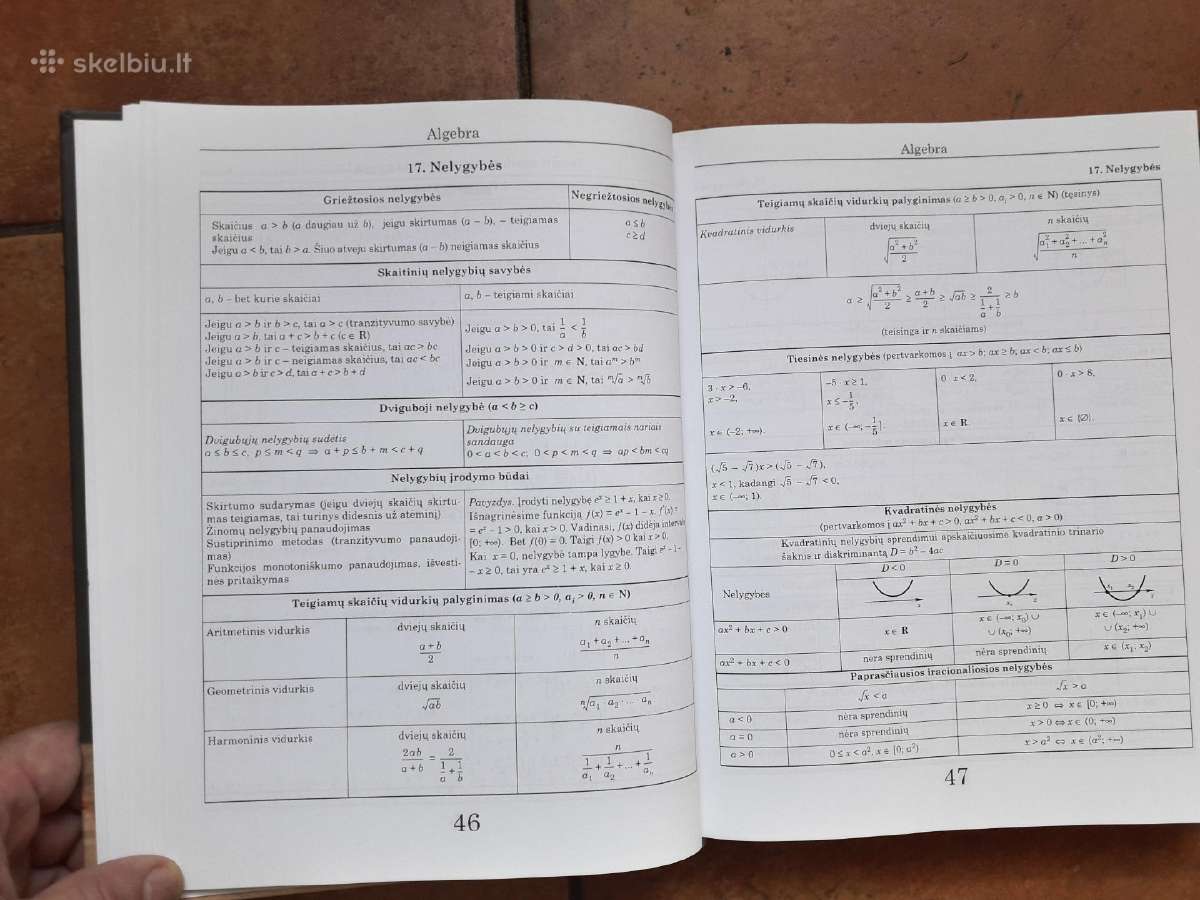 skelbiu.lt
Algebra
17. Nelygybės
Griežtosios nelygybės
Negriežtosios nelygybės
Skaičius a > b (a daugiau už b), jeigu skirtumas (a – b), – teigiamas
skaičius
Jeigu a < b, tai b > a. Šiuo atveju skirtumas (a – b) neigiamas skaičius
a ≤ b
c ≥ d
Skaitinių nelygybių savybės
a, b – bet kurie skaičiai
a, b – teigiami skaičiai
Jeigu a > b ir b > c, tai a > c (tranzityvumo savybė)
Jeigu a > b, tai a + c > b + c (c ∈ R)
Jeigu a > b ir c – teigiamas skaičius, tai ac > bc
Jeigu a > b ir c – neigiamas skaičius, tai ac < bc
Jeigu a > b ir c > d, tai a + c > b + d
Jeigu a > b > 0, tai 1/a < 1/b
Jeigu a > b > 0 ir c > d > 0, tai ac > bd
Jeigu a > b > 0 ir m ∈ N, tai aᵐ > bᵐ
Jeigu a > b > 0 ir m ∈ N, tai ᵐ√a > ᵐ√b
Dviguboji nelygybė (a < b ≥ c)
Dvigubųjų nelygybių sudėtis
a ≤ b ≤ c, p ≤ m < q ⇒ a + p ≤ b + m < c + q
Dvigubųjų nelygybių su teigiamais nariais
sandauga
0 < a < b < c, 0 < p < m < q ⇒ ap < bm < cq
Nelygybių įrodymo būdai
Skirtumo sudarymas (jeigu dviejų skaičių skirtu-
mas teigiamas, tai turinys didesnis už ateminį)
Žinomų nelygybių panaudojimas
Sustiprinimo metodas (tranzityvumo panaudoji-
mas)
Funkcijos monotoniškumo panaudojimas, išvesti-
nės pritaikymas
Pavyzdys. Įrodyti nelygybę eˣ ≥ 1 + x, kai x ≥ 0.
Išnagrinėsime funkciją f(x) = eˣ – 1 – x. f'(x) =
= eˣ – 1 > 0, kai x > 0. Vadinasi, f(x) didėja intervale
[0; +∞). Bet f(0) = 0. Taigi f(x) > 0 kai x > 0.
Kai x = 0, nelygybė tampa lygybe. Taigi eˣ – 1 –
– x ≥ 0, tai yra eˣ ≥ 1 + x, kai x ≥ 0.
Teigiamų skaičių vidurkių palyginimas (a ≥ b > 0, aᵢ > 0, n ∈ N)
Aritmetinis vidurkis
dviejų skaičių
(a + b)/2
n skaičių
(a₁ + a₂ + ... + aₙ)/n
Geometrinis vidurkis
dviejų skaičių
√ab
n skaičių
ⁿ√a₁ · a₂ · ... · aₙ
Harmoninis vidurkis
dviejų skaičių
2ab/(a + b) = 2/(1/a + 1/b)
n skaičių
n/(1/a₁ + 1/a₂ + ... + 1/aₙ)
46
Algebra
17. Nelygybės
Teigiamų skaičių vidurkių palyginimas (a ≥ b > 0, aᵢ > 0, n ∈ N) (tęsinys)
Kvadratinis vidurkis
dviejų skaičių
√((a² + b²)/2)
n skaičių
√((a₁² + a₂² + ... + aₙ²)/n)
a ≥ √((a² + b²)/2) ≥ (a + b)/2 ≥ √ab ≥ 2/(1/a + 1/b) ≥ b
(teisinga ir n skaičiams)
Tiesinės nelygybės (pertvarkomos į ax > b; ax ≥ b; ax < b; ax ≤ b)
3 · x > –6,
x > –2,
x ∈ (–2; +∞).
–5 · x ≥ 1,
x ≤ –1/5,
x ∈ (–∞; –1/5].
0 · x < 2,
x ∈ R
0 · x > 8,
x ∈ {∅}.
(√5 – √7)x > (√5 – √7),
x < 1, kadangi √5 – √7 < 0,
x ∈ (–∞; 1).
Kvadratinės nelygybės
(pertvarkomos į ax² + bx + c > 0, ax² + bx + c < 0, a > 0)
Kvadratinių nelygybių sprendimui apskaičiuosime kvadratinio trinario
šaknis ir diskriminantą D = b² – 4ac
Nelygybės
D < 0
D = 0
D > 0
ax² + bx + c > 0
x ∈ R
x ∈ (–∞; x₀) ∪
∪ (x₀; +∞)
x ∈ (–∞; x₁) ∪
∪ (x₂; +∞)
ax² + bx + c < 0
nėra sprendinių
nėra sprendinių
x ∈ (x₁; x₂)
Paprasčiausios iracionaliosios nelygybės
√x < a
√x > a
a < 0
nėra sprendinių
x ≥ 0 ⇔ x ∈ [0; +∞)
a = 0
nėra sprendinių
x > 0 ⇔ x ∈ (0; +∞)
a > 0
0 ≤ x < a², x ∈ [0; a²)
x > a² ⇔ x ∈ (a²; +∞)
47